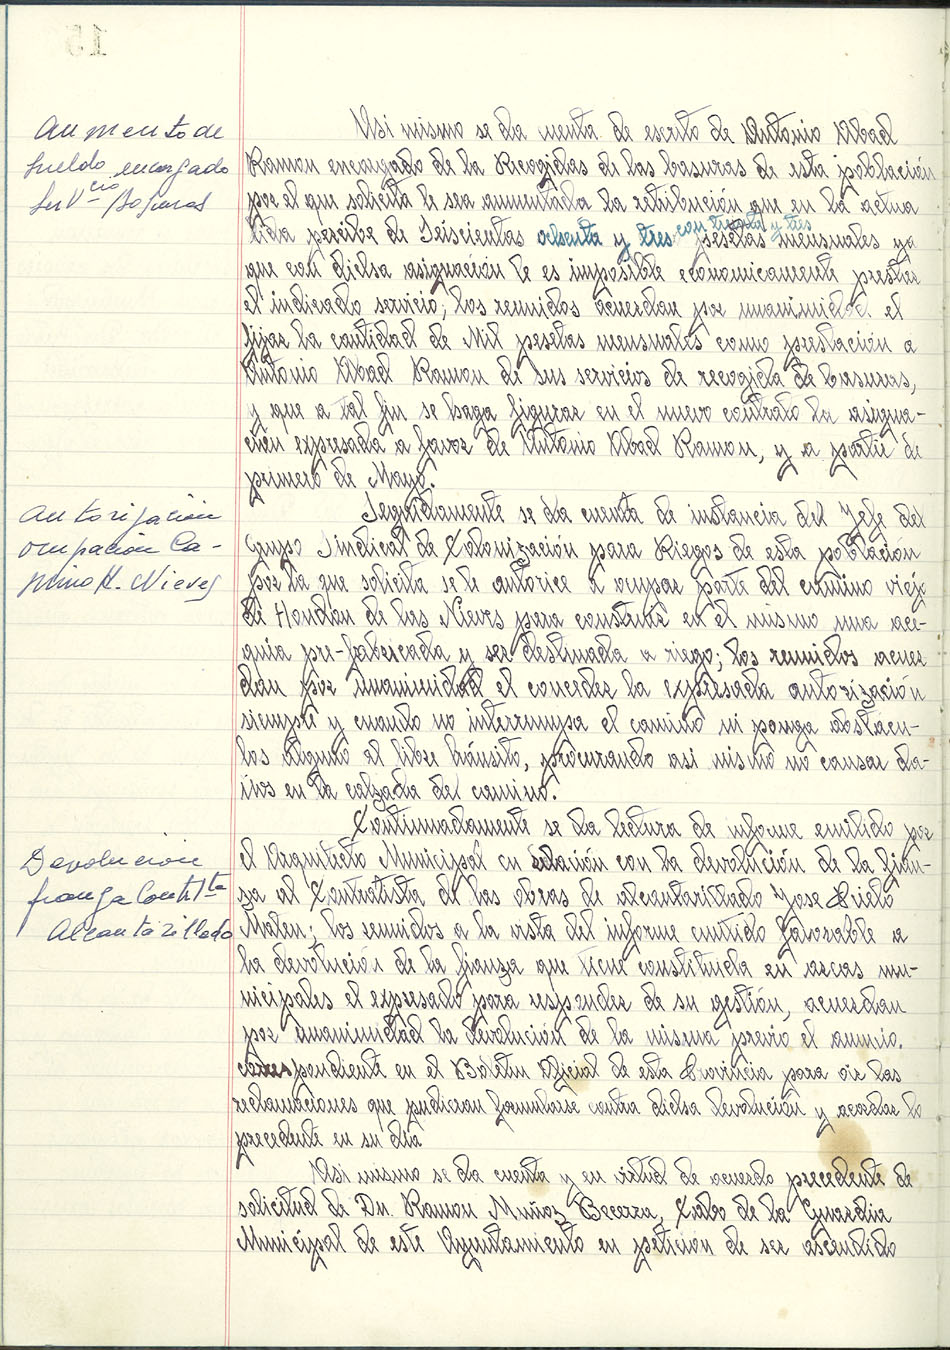 15
Aumento de
sueldo encargado
Servcio Basuras
Asi mismo se da cuenta de escrito de Antonio Abad
Ramon encargado de la Recogidas de las basuras de esta población
por el que solicita le sea aumentada la retribución que en la actua
lida percibe de Seiscientas ochenta y tres con treinta y tres pesetas mensuales ya
que con dicha asignación le es imposible economicamente prestar
el indicado servicio; los reunidos acuerdan por unanimidad el
fijar la cantidad de Mil pesetas mensuales como prestación a
Antonio Abad Ramon de sus servicios de recogida de basuras,
y que a tal fin se haga figurar en el nuevo contrato la asigna-
ción expresada a favor de Antonio Abad Ramon, y a partir de
primero de Mayo.
Autorización
ocupación Ca-
mino H. Nieves
Seguidamente se da cuenta de instancia del Jefe del
Grupo Sindical de Colonización para Riegos de esta población
por la que solicita se le autorice a ocupar parte del camino viejo
de Hondon de las Nieves para construir en el mismo una ace-
quia pre-fabricada y ser destinada a riego; los reunidos acuer
dan por unanimidad el conceder la expresada autorización
siempre y cuando no interrumpa el camino ni ponga obstacu-
los alguno al libre tránsito, procurando asi mismo no causar da-
ños en la calzada del camino.
Devolución
fianza Contrta
Alcantarillado
Continuadamente se da lectura de informe emitido por
el Arquitecto Municipal en relación con la devolución de la fian-
za al Contratista de las obras de alcantarillado Jose Criado
Maten; los reunidos a la vista del informe emitido favorable a
la devolución de la fianza que tiene constituida en arcas mu-
nicipales el expresado para responder de su gestión, acuerdan
por unanimidad la devolución de la misma previo el anuncio.
correspondiente en el Boletin Oficial de esta Provincia para oir las
reclamaciones que pudieran formularse contra dicha devolución y acordar lo
precedente en su dia
Asi mismo se da cuenta y en virtud de acuerdo precedente de
solicitud de Dn. Ramon Muñoz Becerra, Cabo de la Guardia
Municipal de este Ayuntamiento en petición de ser ascendido